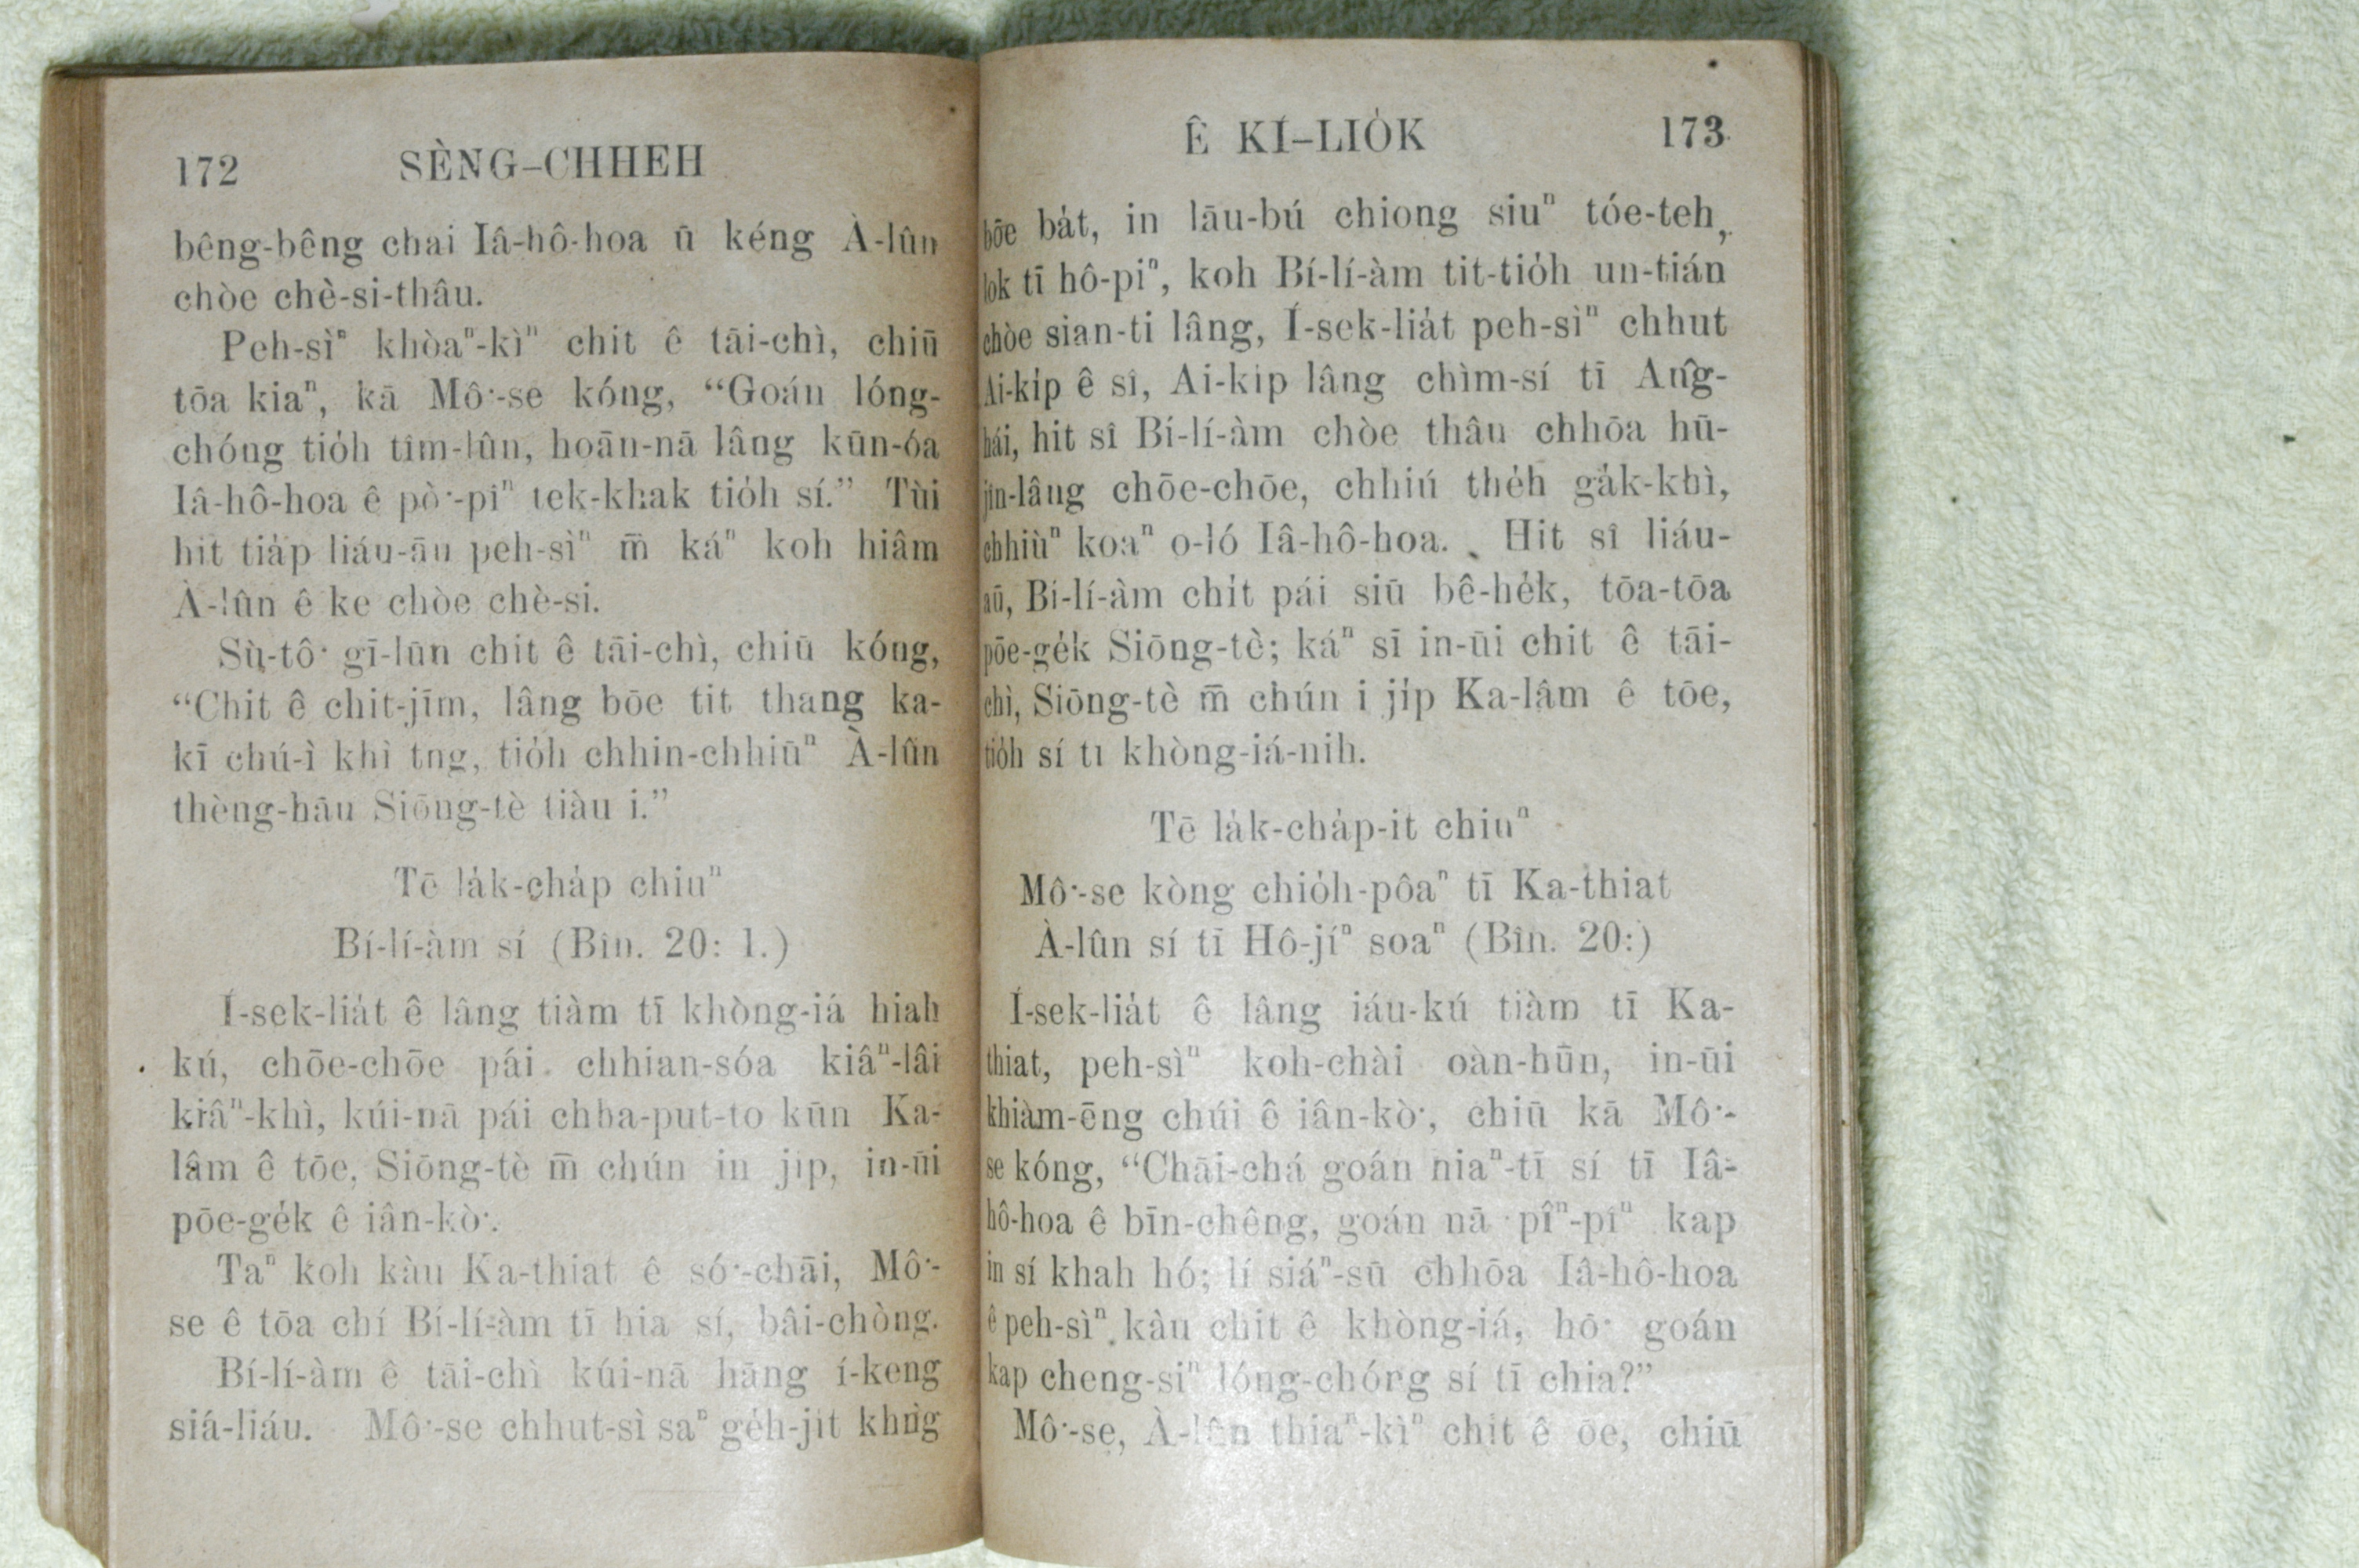 172 SÈNG-CHHEH
bêng-bêng chai Iâ-hô-hoa ū kéng À-lûn
chòe chè-si-thâu.
Peh-sìⁿ khòaⁿ-kìⁿ chit ê tāi-chì, chiū
tōa kiaⁿ, kā Mô͘-se kóng, “Goán lóng-
chóng tio̍h tîm-lûn, hoān-nā lâng kūn-óa
Iâ-hô-hoa ê pò͘-pîⁿ tek-khak tio̍h sí.” Tùi
hit tia̍p liáu-āu peh-sìⁿ m̄ káⁿ koh hiâm
À-lûn ê ke chòe chè-si.
Sù-tô͘ gī-lūn chit ê tāi-chì, chiū kóng,
“Chit ê chit-jīm, lâng bōe tit thang ka-
kī chú-ì khì tng, tio̍h chhin-chhiūⁿ À-lûn
thèng-hāu Siōng-tè tiàu i.”
Tē la̍k-cha̍p chiuⁿ
Bí-lí-àm sí (Bîn. 20: 1.)
Í-sek-lia̍t ê lâng tiàm tī khòng-iá hiah
kú, chōe-chōe pái chhian-sóa kiâⁿ-lâi
kiâⁿ-khì, kúi-nā pái chha-put-to kūn Ka-
lâm ê tōe, Siōng-tè m̄ chún in ji̍p, in-ūi
pōe-ge̍k ê iân-kò͘.
Taⁿ koh kàu Ka-thiat ê só͘-chāi, Mô͘-
se ê tōa chí Bí-lí-àm tī hia sí, bâi-chòng.
Bí-lí-àm ê tāi-chì kúi-nā hāng í-keng
siá-liáu. Mô͘-se chhut-sì saⁿ ge̍h-jit khǹg
Ê KÍ-LIO̍K 173
bōe ba̍t, in lāu-bú chiong siuⁿ tóe-teh,
lok tī hô-piⁿ, koh Bí-lí-àm tit-tio̍h un-tián
chòe sian-ti lâng, Í-sek-lia̍t peh-sìⁿ chhut
Ai-ki̍p ê sî, Ai-ki̍p lâng chìm-sí tī Âng-
hái, hit sî Bí-lí-àm chòe thâu chhōa hū-
jîn-lâng chōe-chōe, chhiú the̍h ga̍k-khì,
chhiùⁿ koaⁿ o-ló Iâ-hô-hoa. Hit sî liáu-
aū, Bí-lí-àm chi̍t pái siū bê-he̍k, tōa-tōa
pōe-ge̍k Siōng-tè; káⁿ sī in-ūi chit ê tāi-
chì, Siōng-tè m̄ chún i ji̍p Ka-lâm ê tōe,
tio̍h sí tī khòng-iá-nih.
Tē la̍k-cha̍p-it chiuⁿ
Mô͘-se kòng chio̍h-pôaⁿ tī Ka-thiat
À-lûn sí tī Hô-jíⁿ soaⁿ (Bîn. 20:)
Í-sek-lia̍t ê lâng iáu-kú tiàm tī Ka-
thiat, peh-sìⁿ koh-chài oàn-hūn, in-ūi
khiàm-ēng chúi ê iân-kò͘, chiū kā Mô͘-
se kóng, “Chāi-chá goán hiaⁿ-tī sí tī Iâ-
hô-hoa ê bīn-chêng, goán nā pîⁿ-pîⁿ kap
in sí khah hó; lí siáⁿ-sū chhōa Iâ-hô-hoa
ê peh-sìⁿ kàu chit ê khòng-iá, hō͘ goán
kap cheng-siⁿ lóng-chóng sí tī chia?”
Mô͘-se, À-lûn thiaⁿ-kìⁿ chit ê ōe, chiū